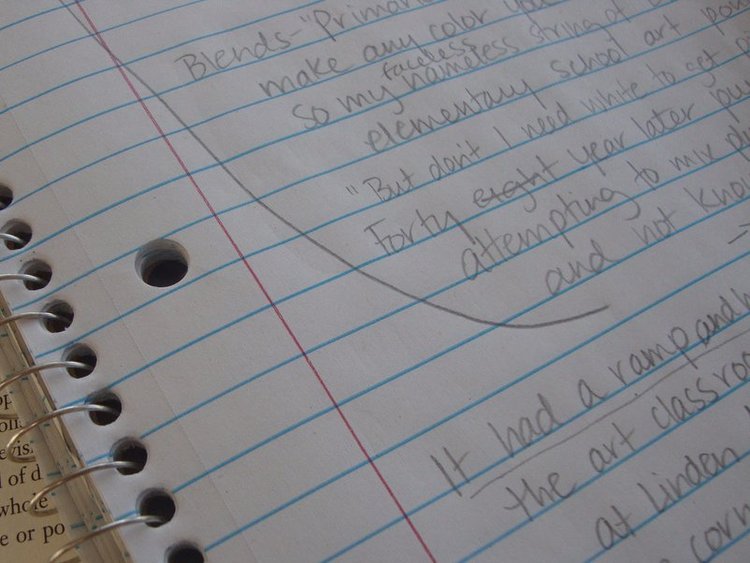 Blends- "Primar
make any color you
faceless
so my nameless string of
elementary school art
"But don't I need white to get
Forty eight year later
attempting to mix
and not kno
It had a ramp and
the art classroo
at Linden
corn
evis
l of d
whole
e or po